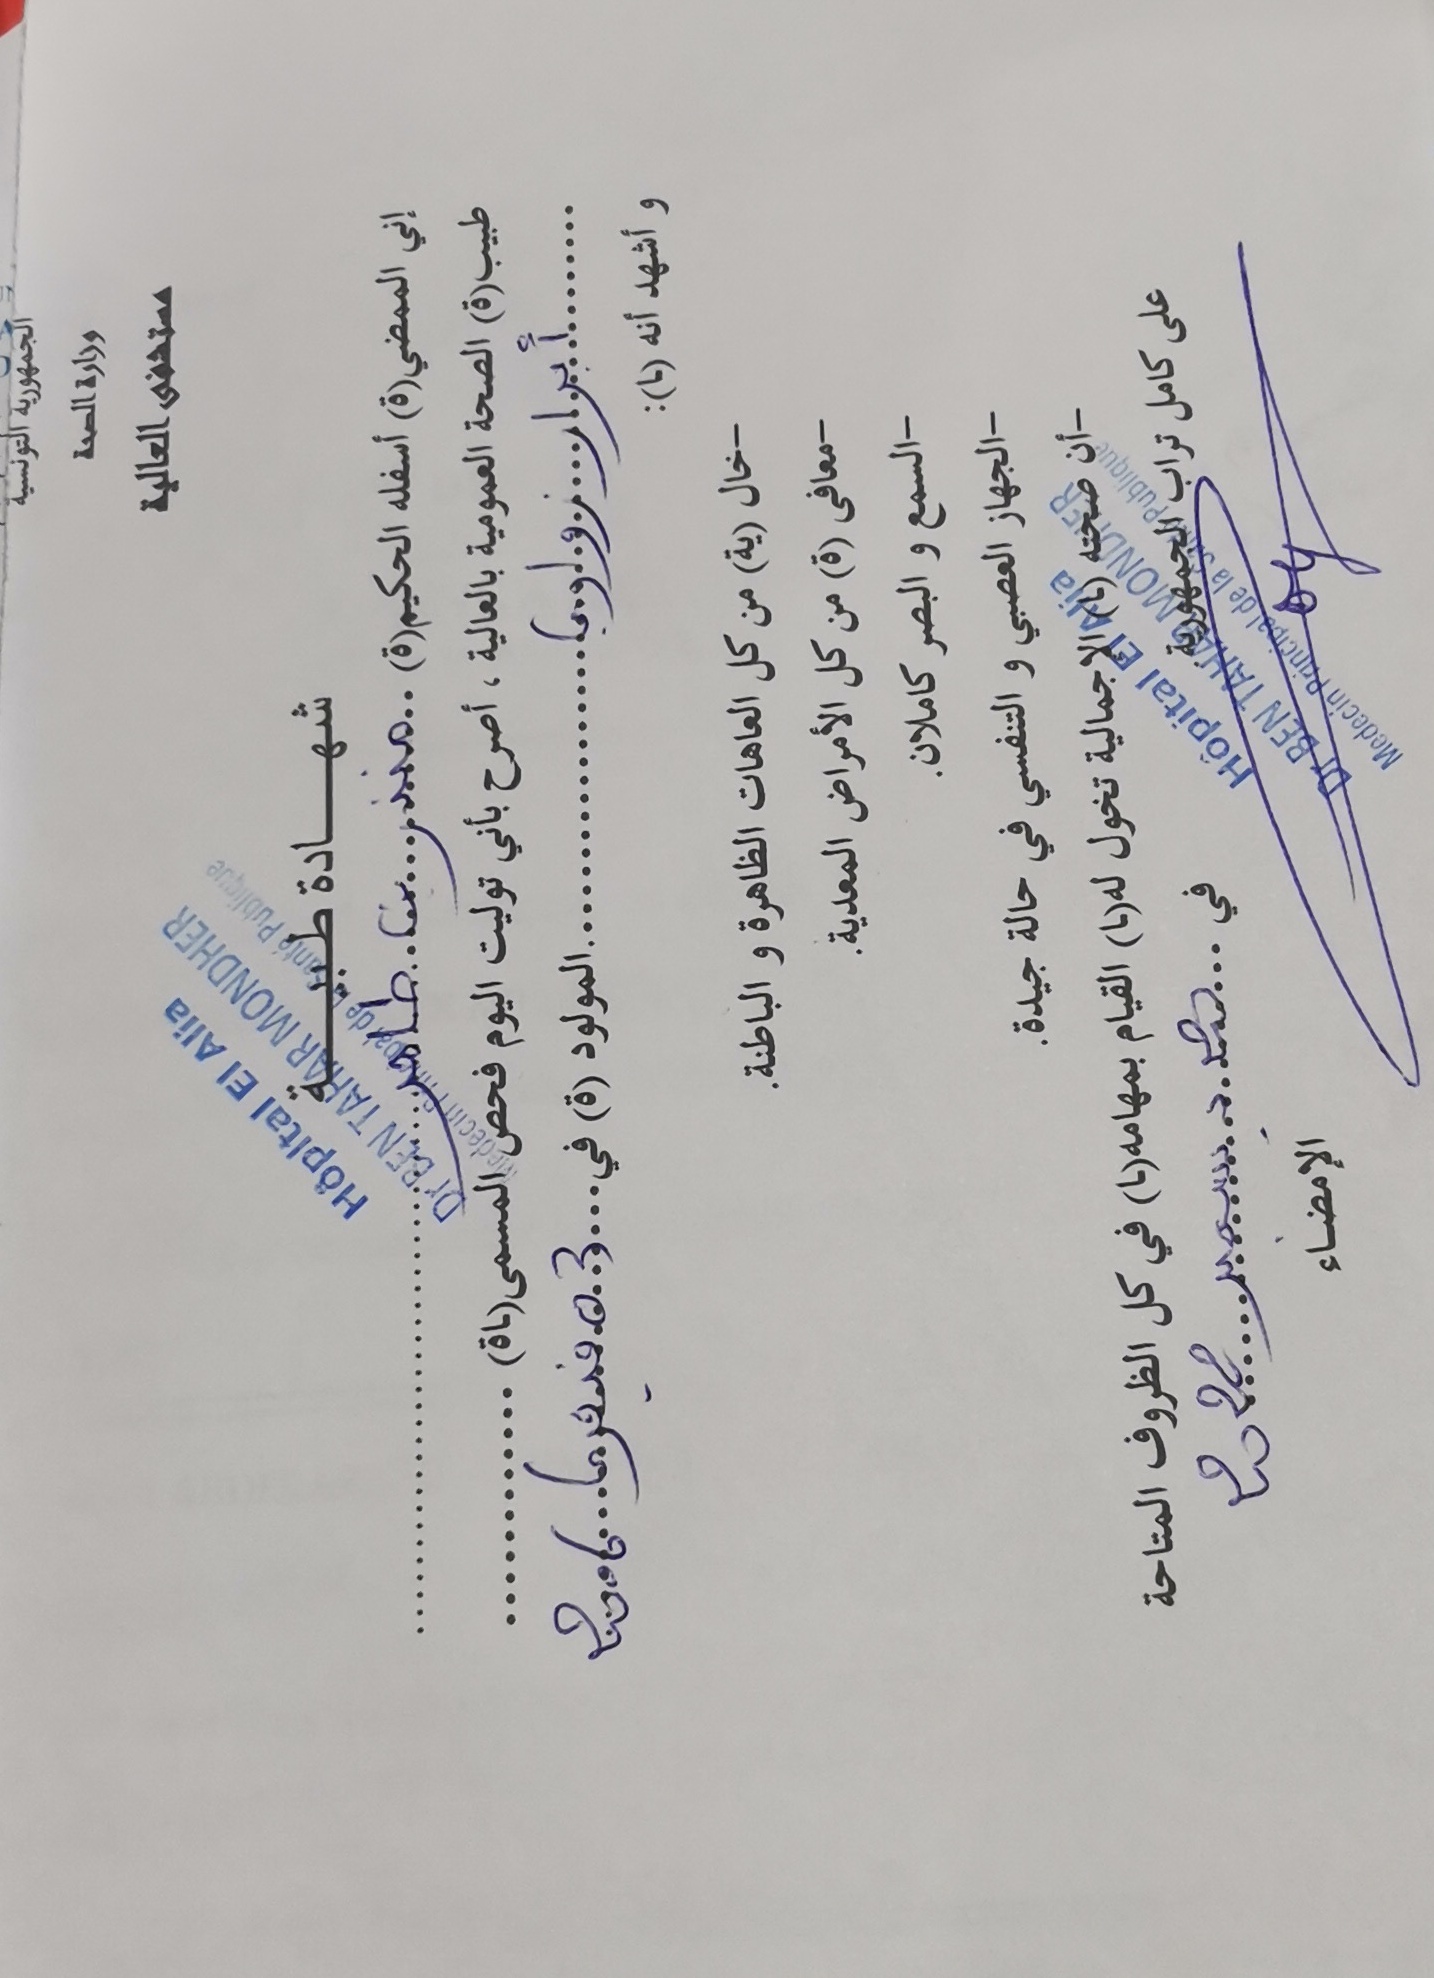 الجمهورية التونسية
وزارة الصحة
مستشفى العالية
شهـــــادة طبيـــــة
Hôpital El Alia
Dr BEN TAHAR MONDHER
Medecin Principal de la Santé Publique
إني الممضي(ة) أسفله الحكيم(ة) ..منذر...بن..طاهر....................
طبيب(ة) الصحة العمومية بالعالية ، أصرح بأني توليت اليوم فحص المسمى(ماة) ............
........أبرار.............المولود (ة) في....03..
و أشهد أنه (ما):
–خال (ية) من كل العاهات الظاهرة و الباطنة.
–معافى (ة) من كل الأمراض المعدية.
–السمع و البصر كاملان.
–الجهاز العصبي و التنفسي في حالة جيدة.
–أن صحته (ما) الإجمالية تخول له(ما) القيام بمهامه(ما) في كل الظروف المتاحة
على كامل تراب الجمهورية
في ...
الإمضاء
Hôpital El Alia
Dr BEN TAHAR MONDHER
Medecin Principal de la Santé Publique